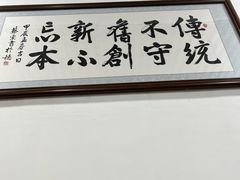 傳統
不守
舊創
新不
忘本
甲辰春吉日
書於